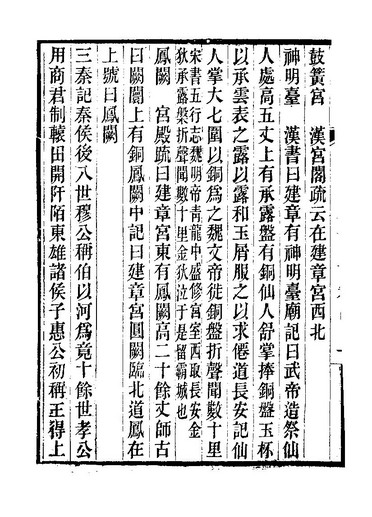 鼓簧宮　漢宮閣疏云在建章宮西北
神明臺　漢書曰建章有神明臺廟記曰武帝造祭仙
人處高五丈上有承露盤有銅仙人舒掌捧銅盤玉杯
以承雲表之露以露和玉屑服之以求僊道長安記仙
人掌大七圍以銅爲之魏文帝徙銅盤折聲聞數十里
宋書五行志魏明帝青龍中盛修宮室西取長安金
狄承露槃折聲聞數十里金狄泣于是留霸城也
鳳闕　宮殿疏曰建章宮東有鳳闕高二十餘丈師古
曰闕圜上有銅鳳闕中記曰建章宮圓闕臨北道鳳在
上號曰鳳闕
三秦記秦侯後八世穆公稱伯以河爲竟十餘世孝公
用商君制轅田開阡陌東雄諸侯子惠公初稱王得上